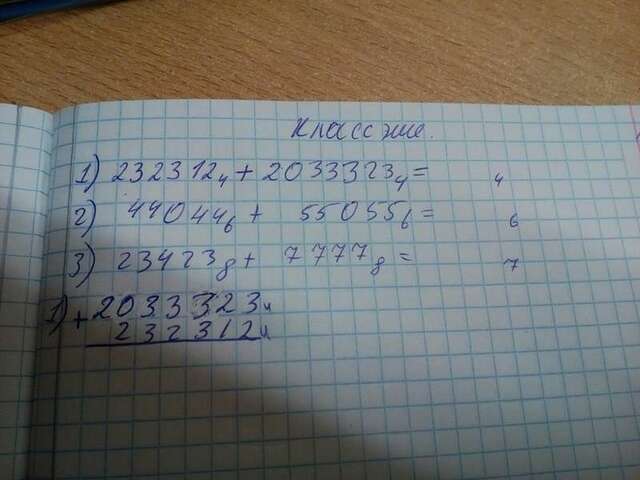 Классже.
1) 232312₄ + 2033323₄ = 4
2) 44044₆ + 55055₆ = 6
3) 23423₈ + 7777₈ = 7
1) + 2033323₄
232312₄